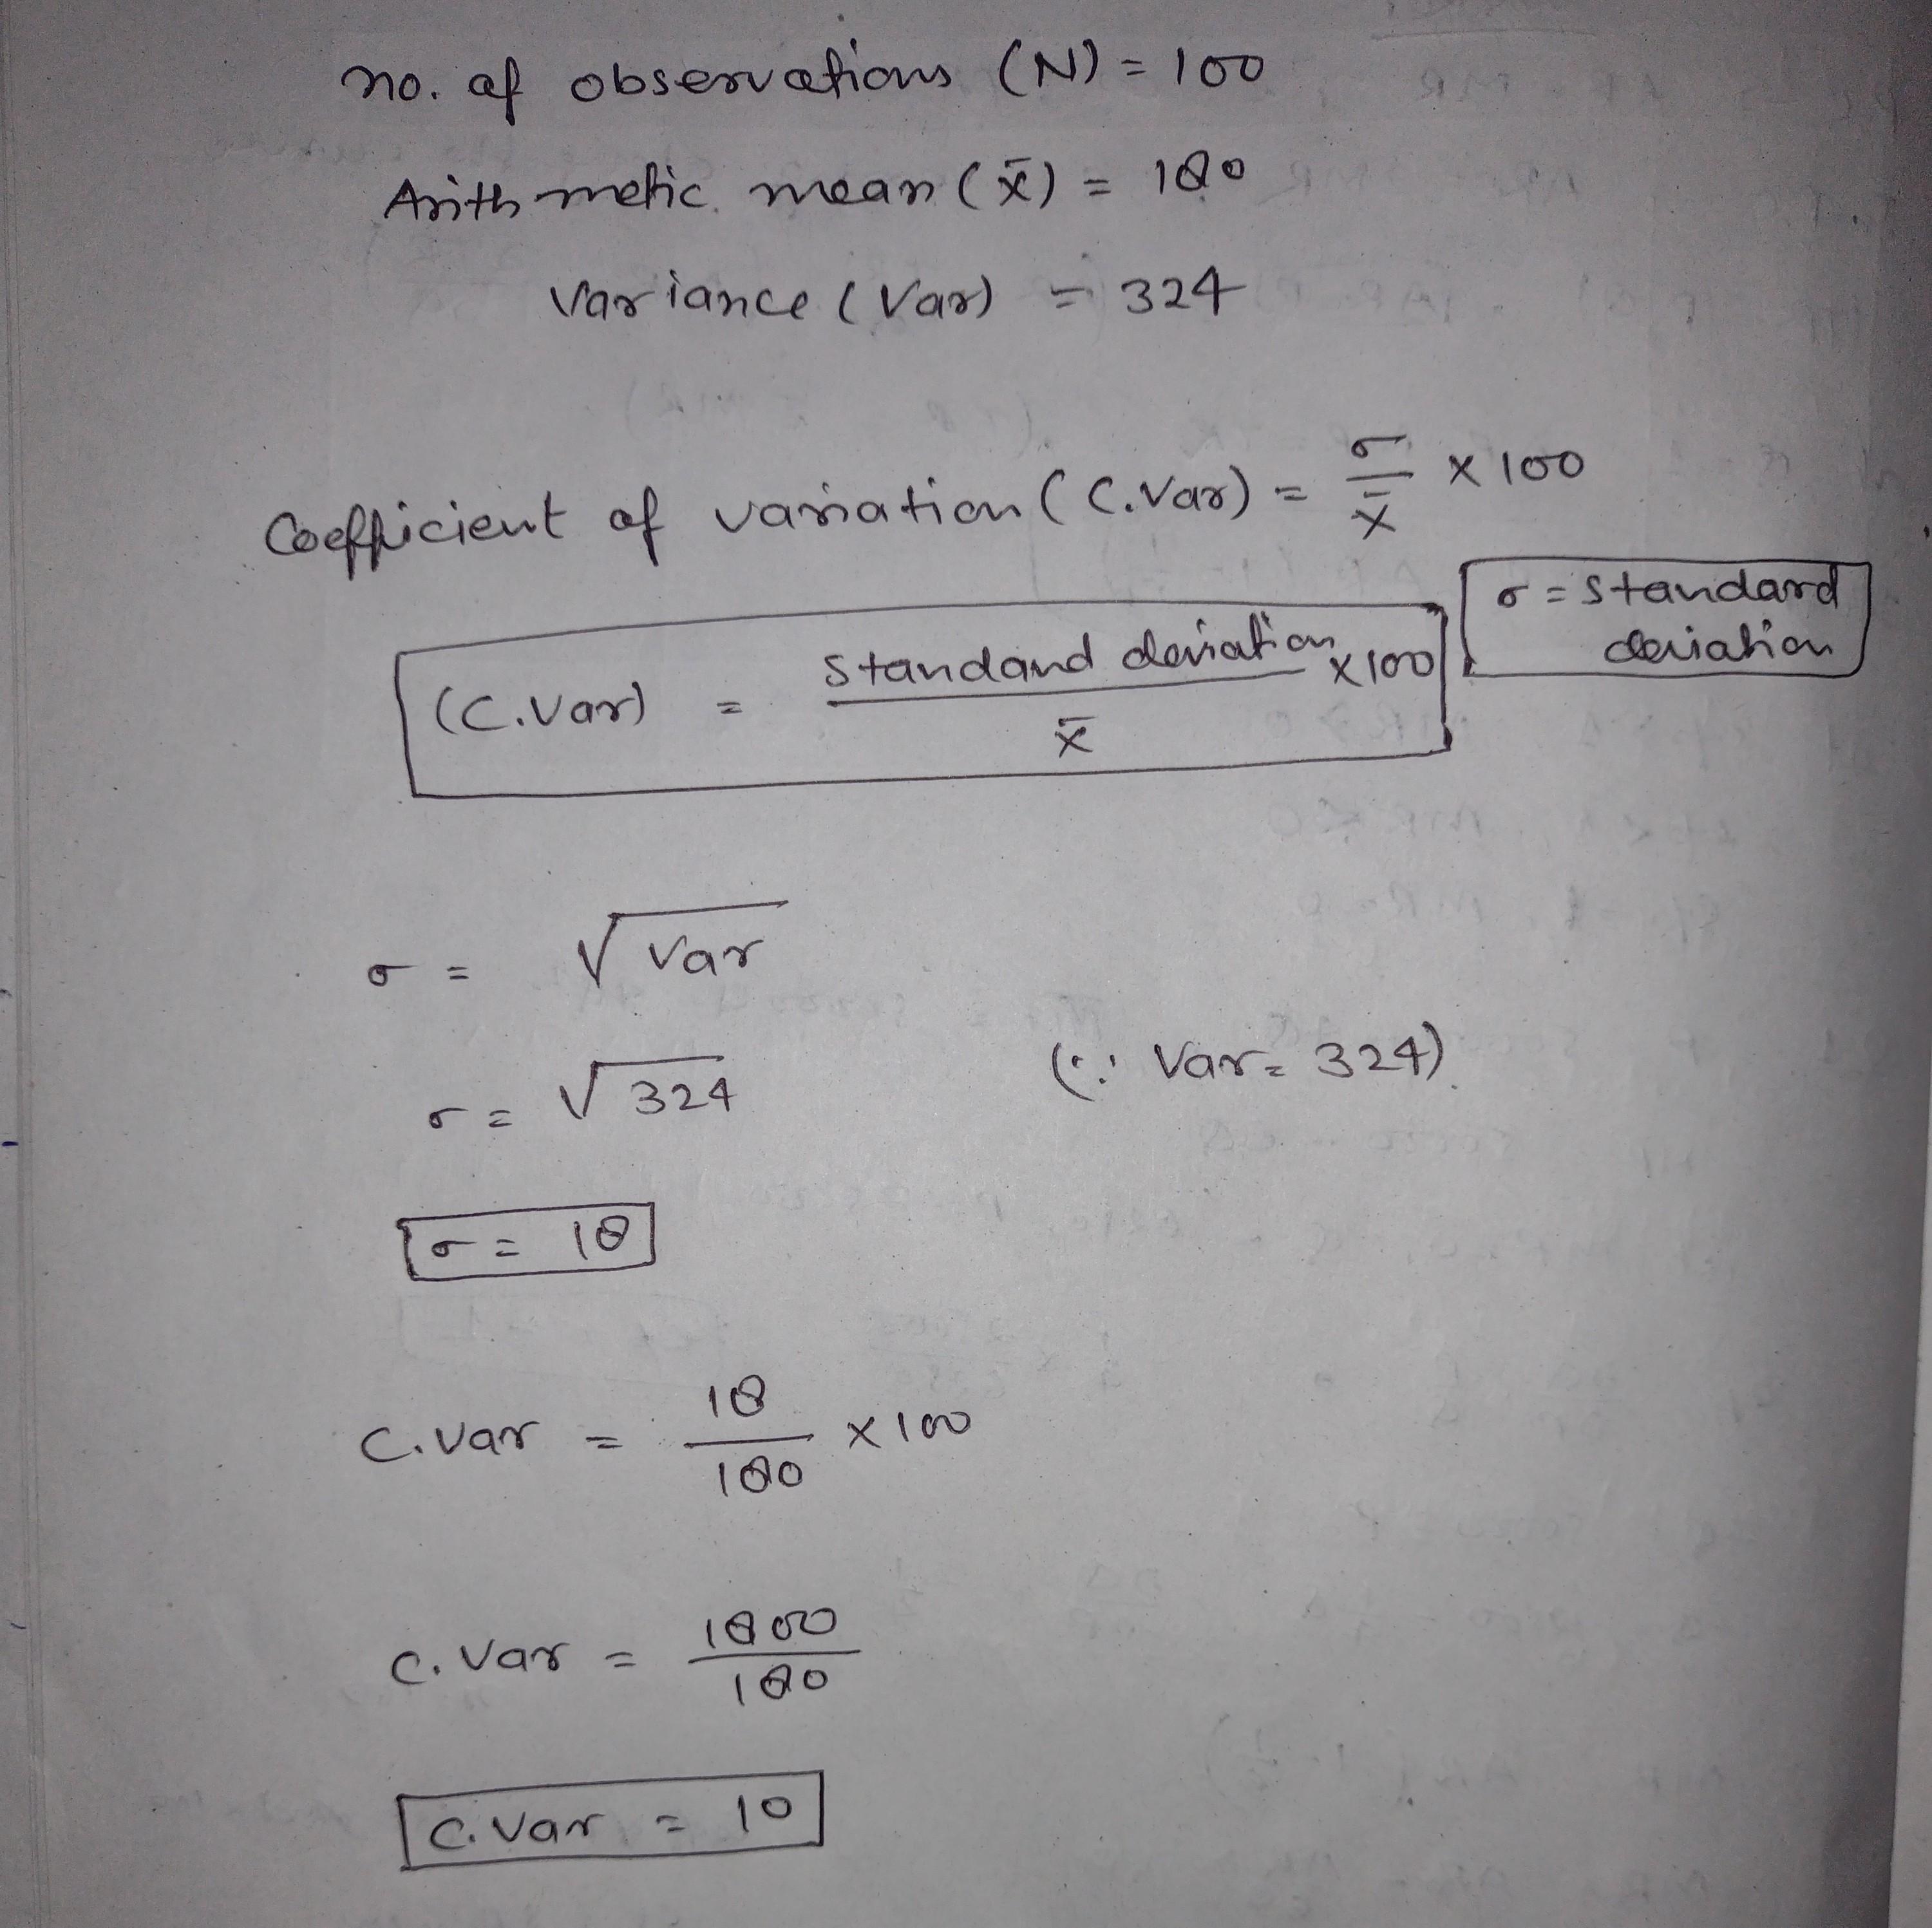 no. of observations (N) = 100
Arithmetic mean (x̄) = 180
Variance (Var) = 324
Coefficient of variation (C.Var) = σ/x̄ × 100
σ = standard deviation
(C.Var) = Standard deviation/x̄ × 100
σ = √Var
σ = √324 (∵ Var = 324)
σ = 18
C.Var = 18/180 × 100
C.Var = 1800/180
C.Var = 10